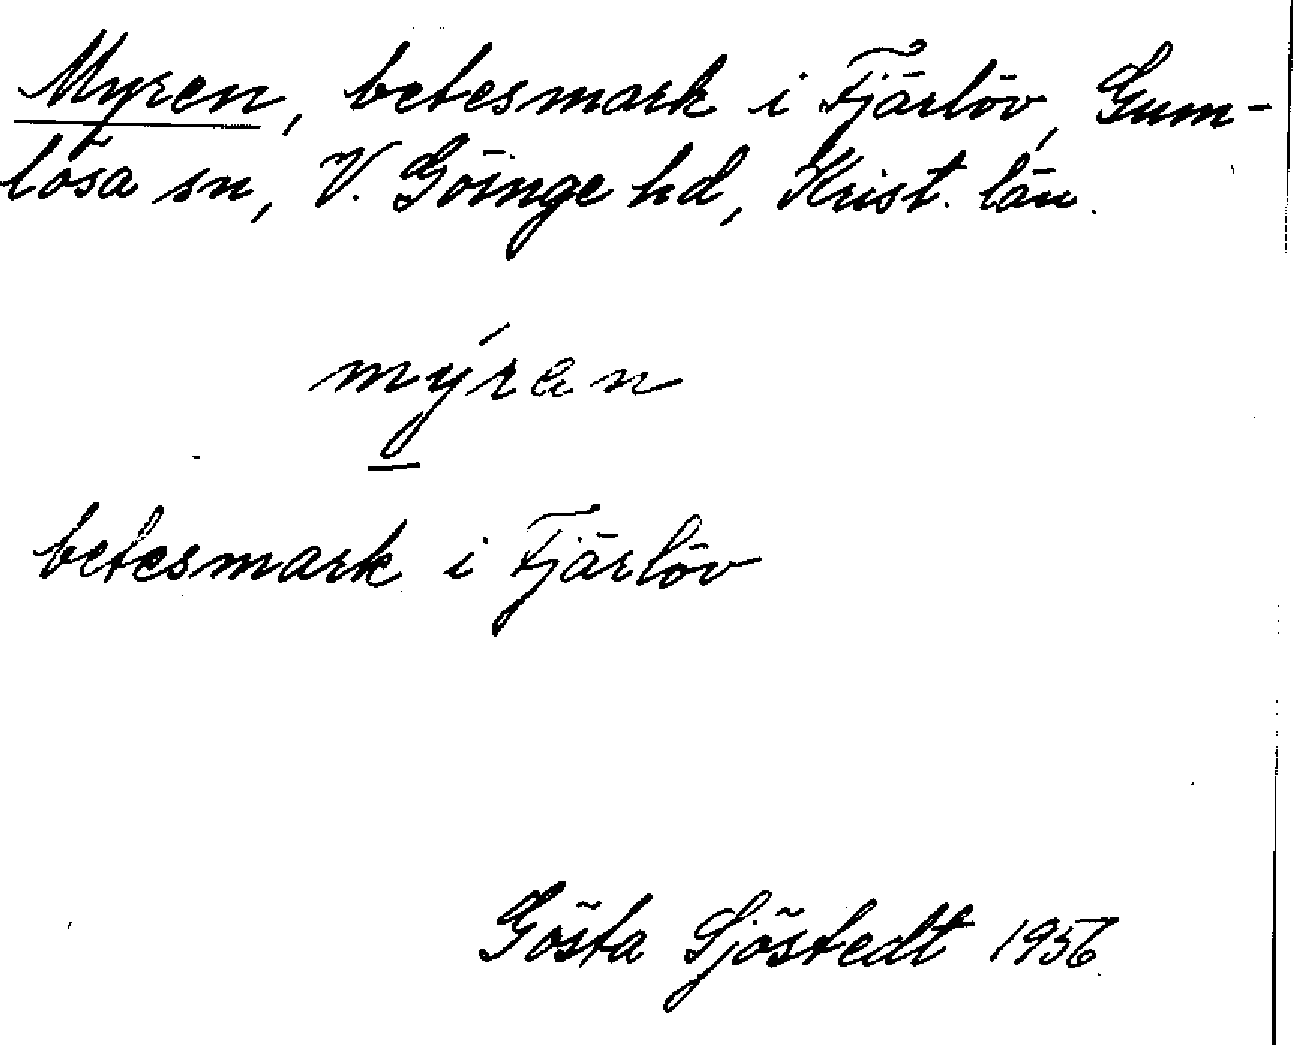 Myren, betesmark i Fjärlöv, Gum-
lösa sn, V. Göinge hd, Krist. län.
mýran
betesmark i Fjärlöv
Gösta Sjöstedt 1956.